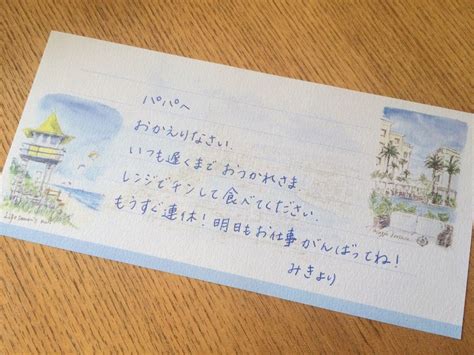 パパへ
おかえりなさい。
いつも遅くまでおつかれさま。
レンジでチンして食べてください。
もうすぐ連休！明日もお仕事がんばってね！
みきより